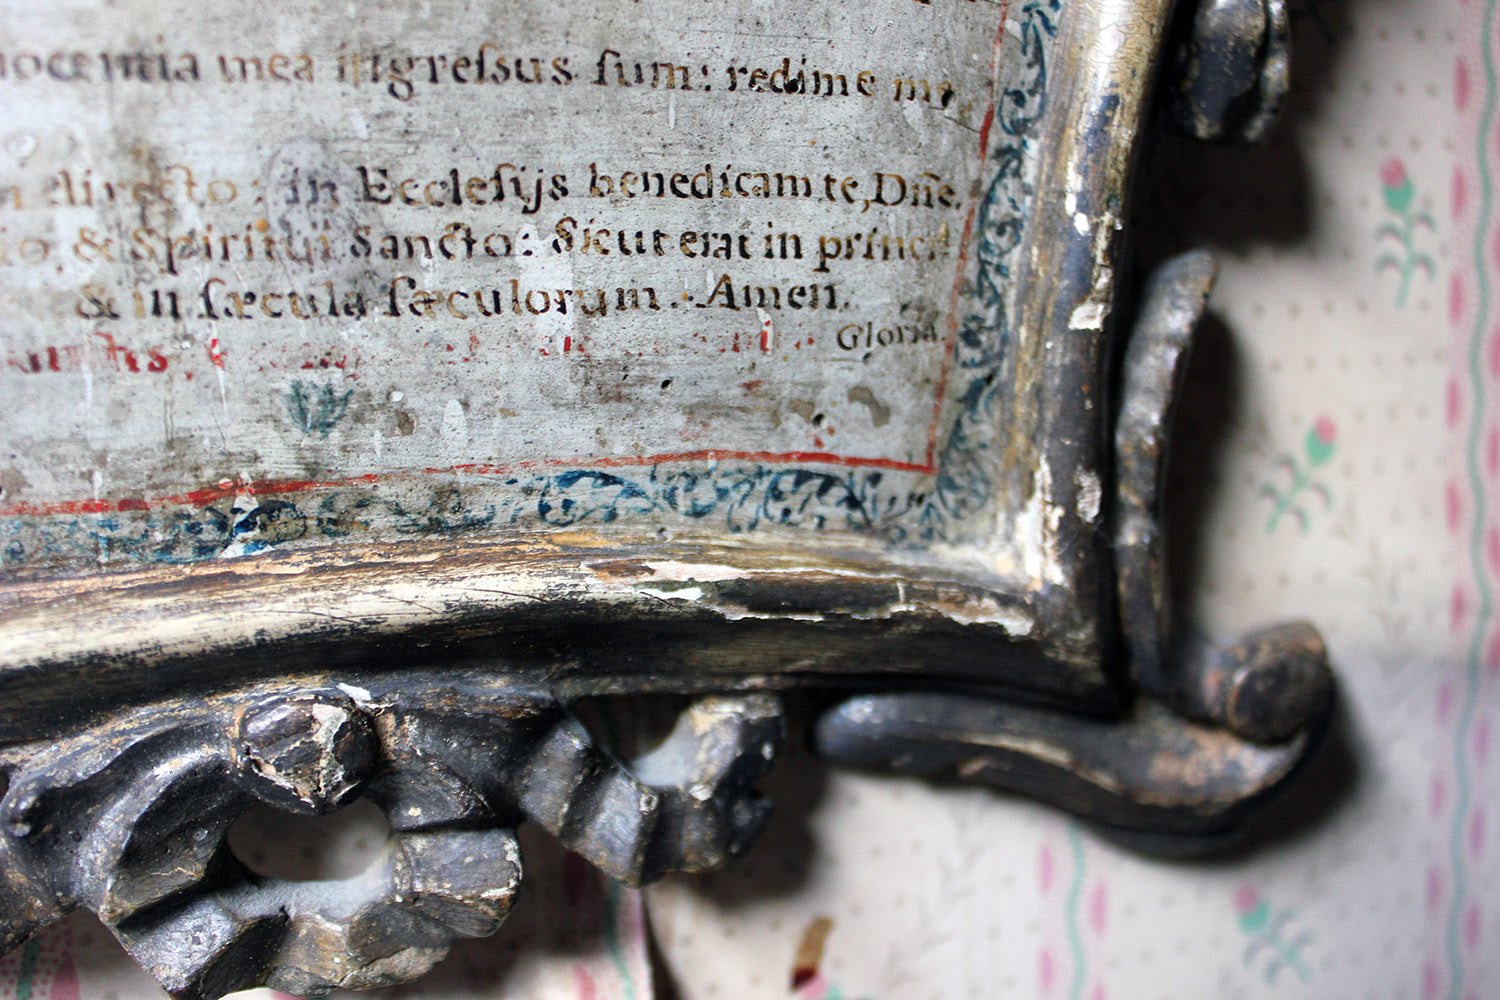 nocentia mea ingreſsus sum: redime me
directo: in Eccleſijs benedicam te, Dñe.
io, & Spiritui Sancto: Sicut erat in princi
& in ſæcula ſæculorum. Amen.
Gloria.